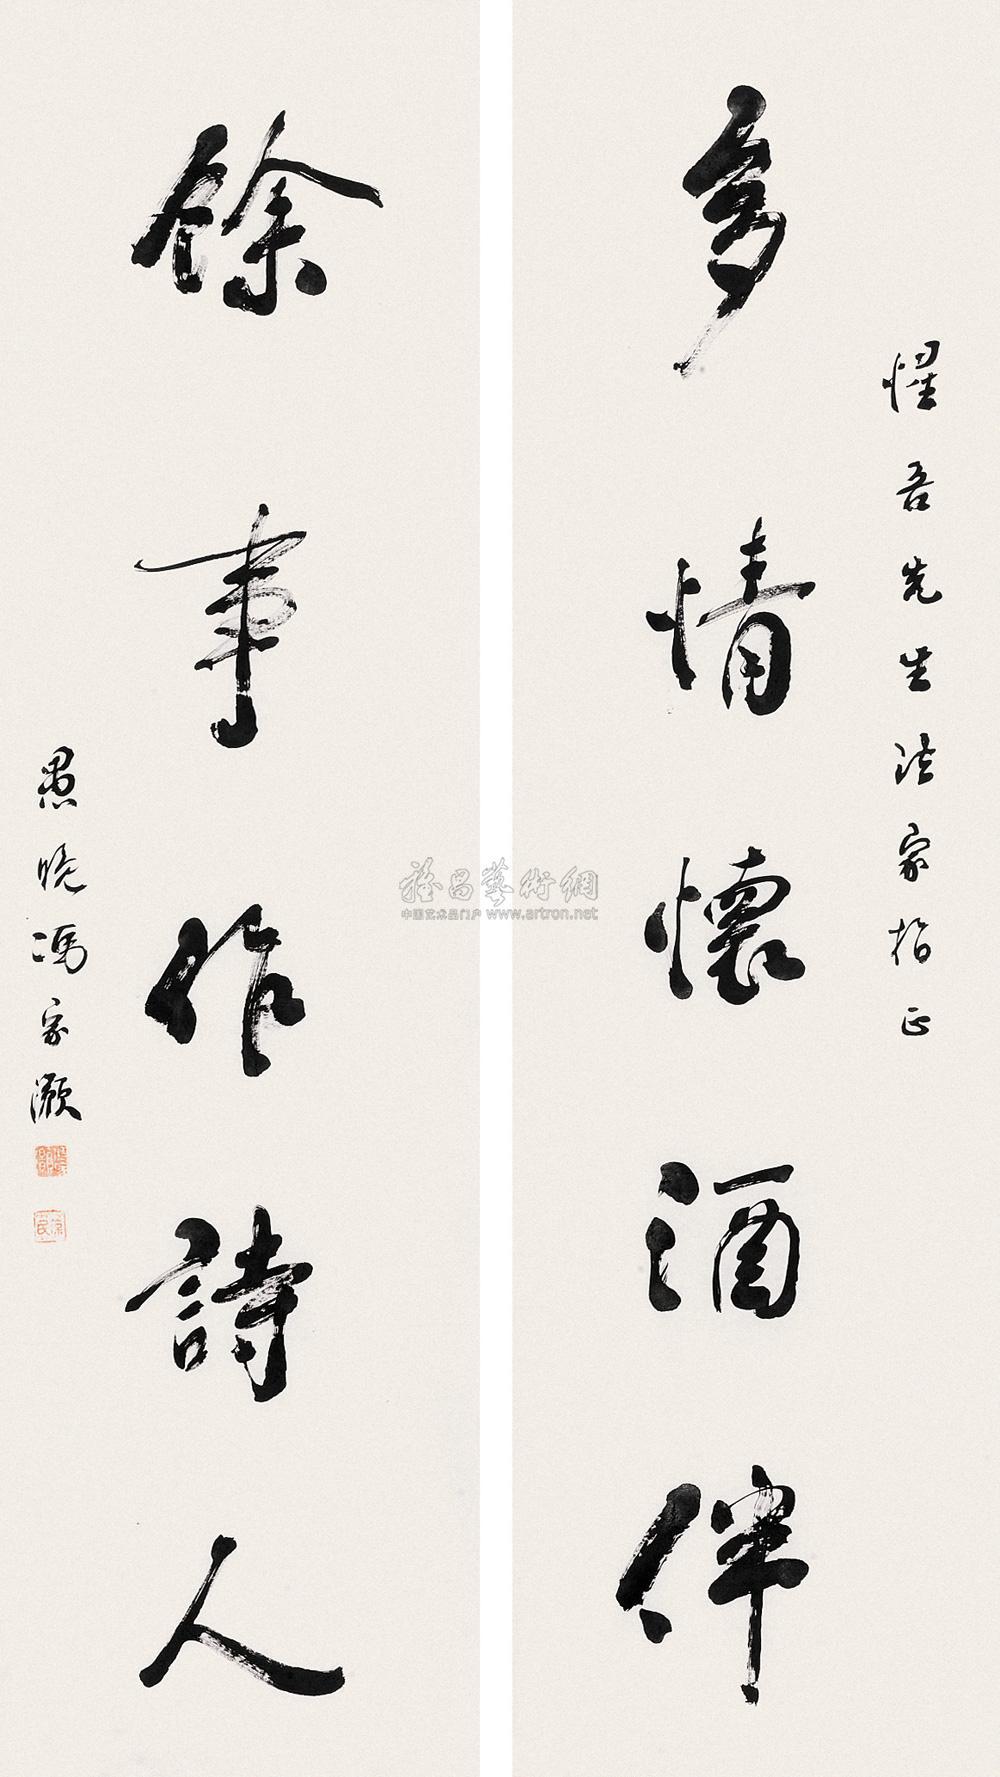 惺吾先生法家指正
多情懷酒伴
餘事作詩人
愚晚馮家灝
雅昌藝術網
中国艺术品门户 www.artron.net